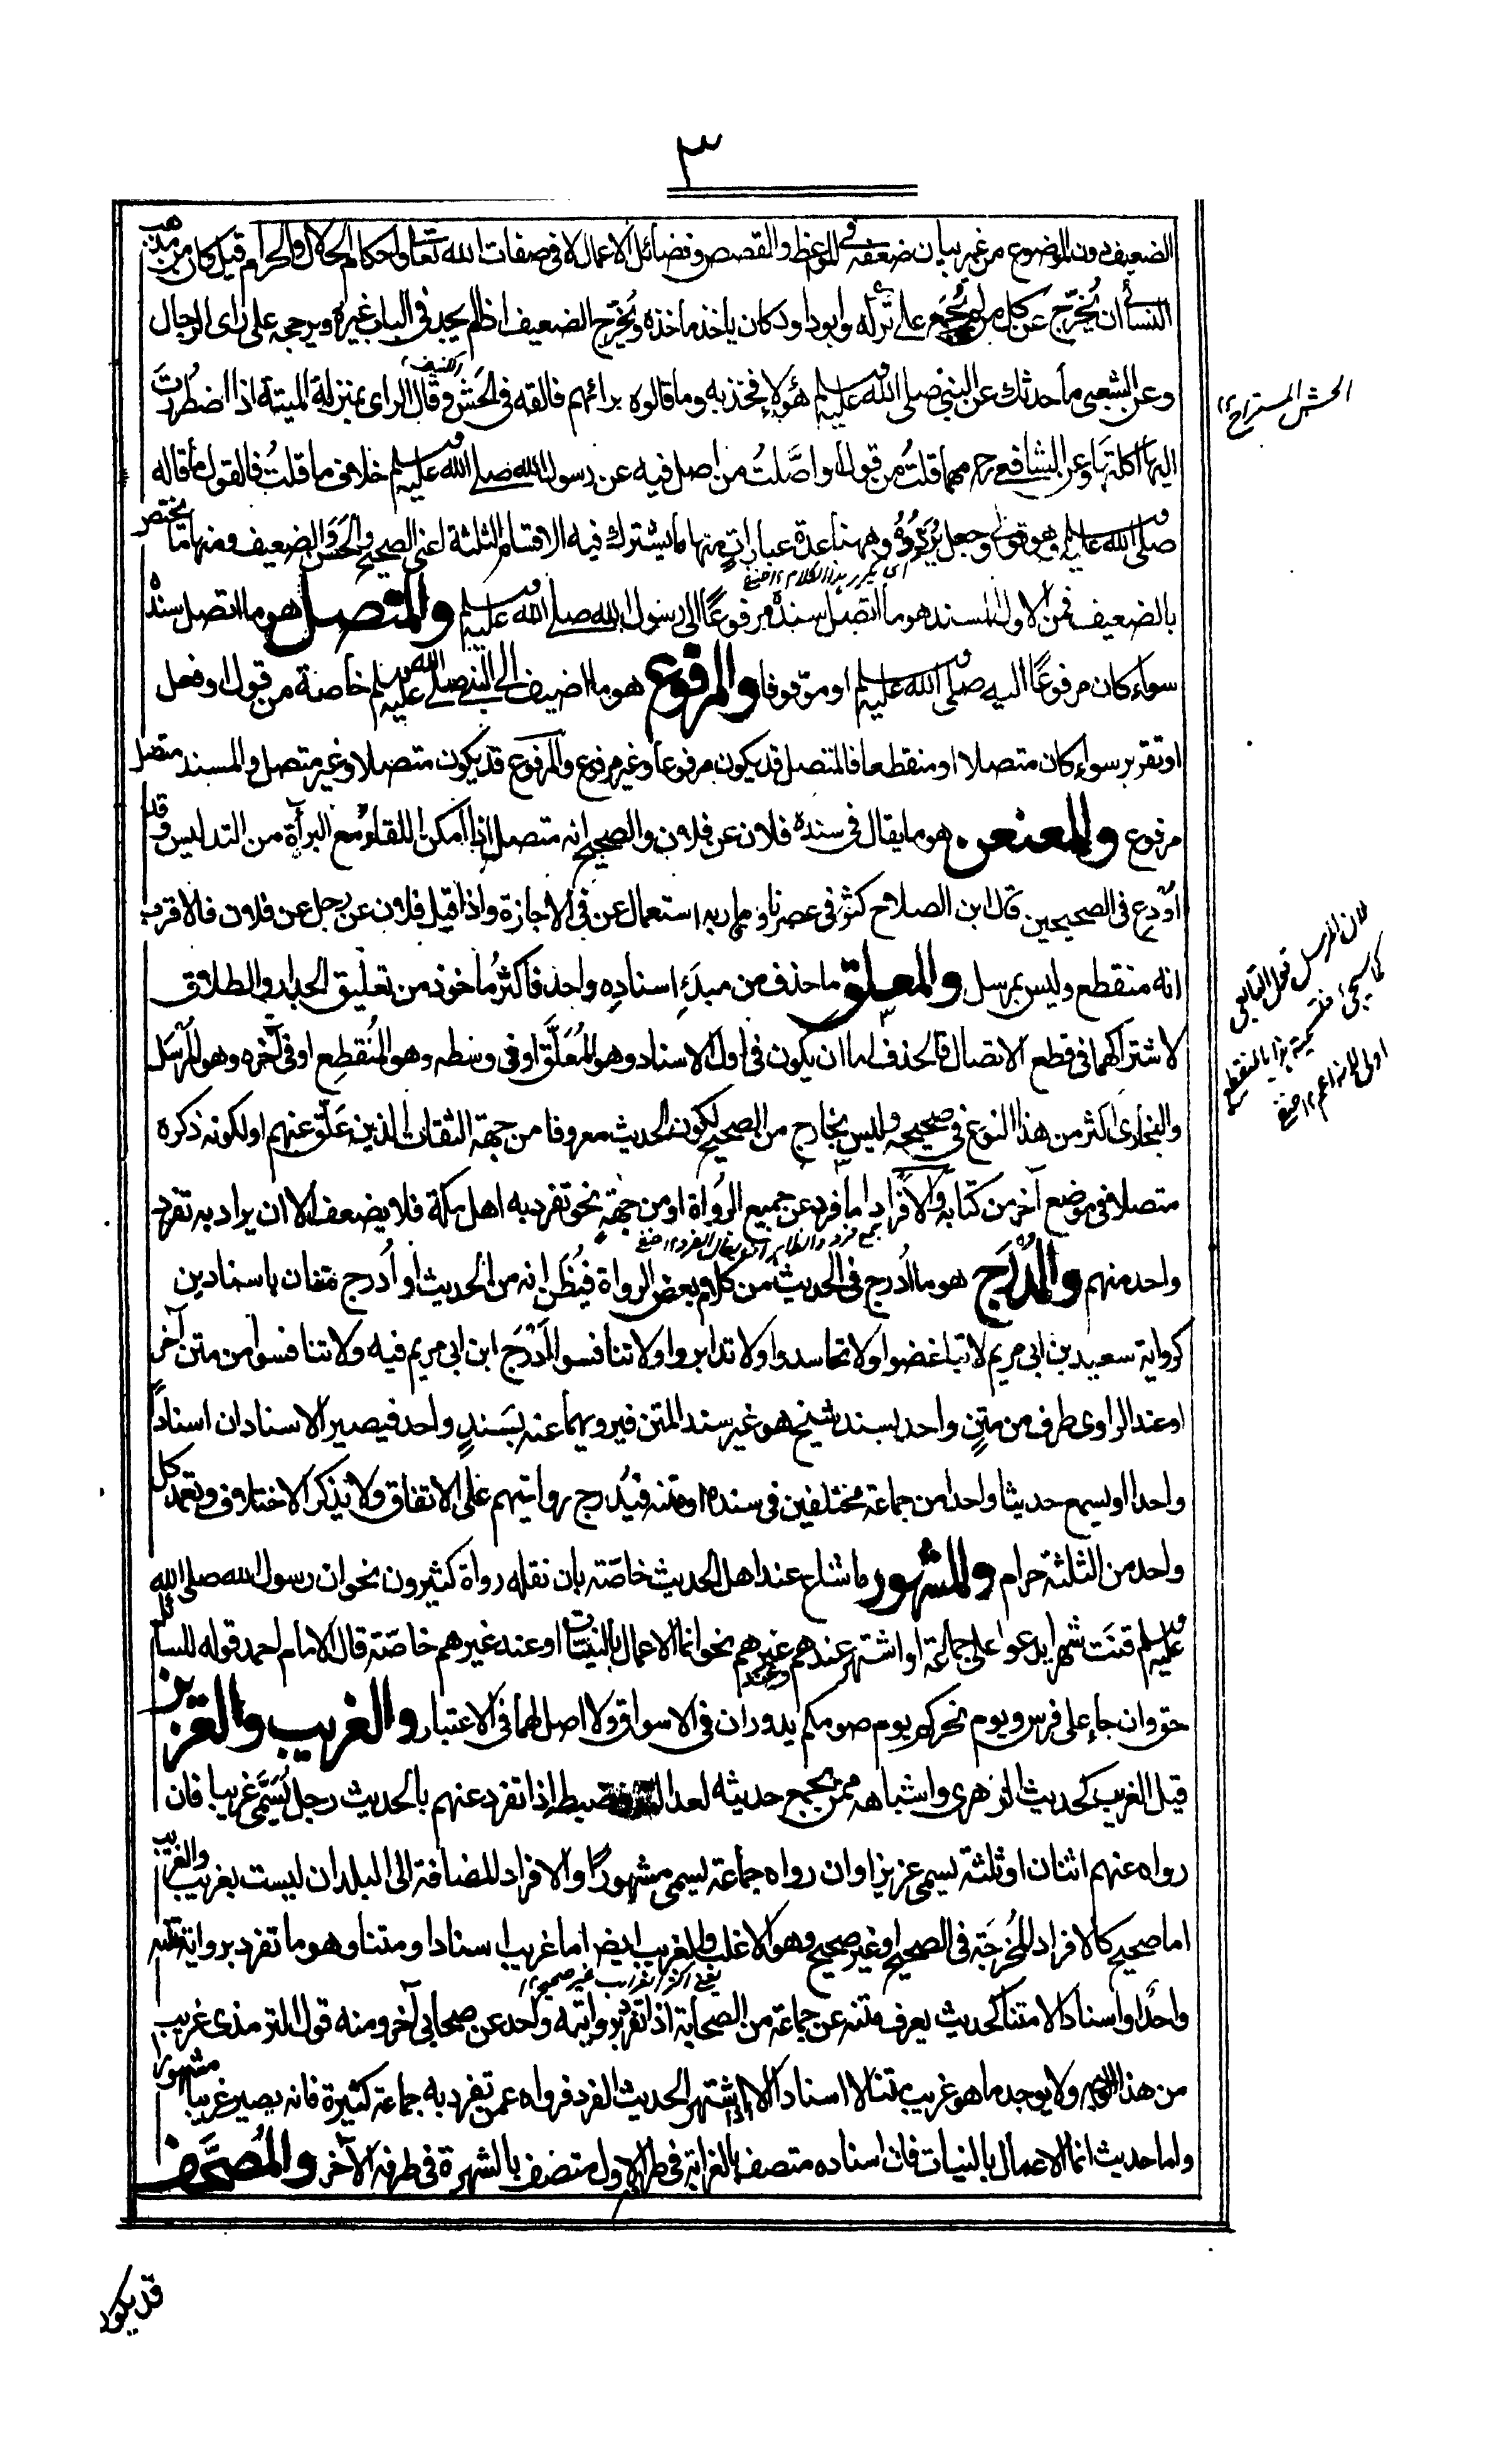 ٣
الضعيف دون الموضوع من غير بيان ضعفه في المواعظ والقصص وفضائل الاعمال لا في صفات الله تعالى واحكام الحلال والحرام قيل كان من مذهب
النسائى ان يُخرّج عن كل من لم يُجمَع على تركه وابوداود كان ياخذ ماخذه ويُخرّج الضعيف اذا لم يجد في الباب غيره ويرجحه على راى الرجال
وعن الشعبى ما حدثك عن النبي صلى الله عليه وسلم هؤلاء فخذ به وما قالوه برائهم فالقه في الحَش وقال الراى بمنزلة الميتة اذا اضطُررتَ
الحش المستراح ١٢
اليها اكلتها وعن الشافعى رح مهما قلتُ من قول او اصَّلتُ من اصل فيه عن رسول الله صلى الله عليه وسلم خلاف ما قلتُ فالقول ما قاله
صلى الله عليه وسلم وهو قولى وجعل يُرَدّدُهُ وههنا عدة عبارات منها ما يشترك فيه الاقسام الثلثة اعنى الصحيح والحَسَن والضعيف ومنها ما يختص
اى يكرر هذا الكلام ١٢
بالضعيف فمن الاول المسند هو ما اتصل سنده مرفوعًا الى رسول الله صلى الله عليه وسلم والمتصل هو ما اتصل سنده
سواء كان مرفوعًا اليه صلى الله عليه وسلم او موقوفا والمرفوع هو ما اضيف الى النبي صلى الله عليه وسلم خاصة من قول او فعل
او تقرير سواء كان متصلا او منقطعا فالمتصل قد يكون مرفوعا وغير مرفوع والمرفوع قد يكون متصلا وغير متصل والمسند متصل
مرفوع والمعنعن هو ما يقال في سنده فلان عن فلان والصحيح انه متصل اذا امكن اللقاء مع البرأة من التدليس وقد
اُودِع في الصحيحين قال ابن الصلاح كثر في عصرنا وما قاربه استعمال عن في الاجازة واذا قيل فلان عن رجل عن فلان فالاقرب
انه منقطع وليس بمرسل والمعلق ما حذف من مبدَءِ اسنادِه واحد فاكثرُ ماخوذ من تعليق الجدار والطلاق
لان المرسل قول التابعى
كما سيجئ فتسميته بذا بالمنقطع
اولى لانه اعم ١٢
لاشتراكهما في قطع الاتصال فالحذف اما ان يكون في اول الاسناد وهو المُعَلَّق او في وسطه وهو المُنقطِع او في آخره وهو المرسَل
والبخارى اكثر من هذا النوع في صحيحه وليس بخارج من الصحيح لكون الحديث معروفا من جهة الثقات الذين عَلّق عنهم او لكونه ذكره
متصلا في موضع آخر من كتابه والافراد اما فرد عن جميع الرواة او من جهةٍ نحو تفرد به اهل مكة فلا يضعف الا ان يراد به تفرد
جمع فرد والظاهر ان يقال الفرد ١٢
واحد منهم والمُدرَج هو ما اُدرج في الحديث من كلام بعض الرواة فيُظَن انه من الحديث او اُدرج متنان باسنادين
كرواية سعيد بن ابى مريم لا تباغضوا ولا تحاسدوا ولا تدابروا ولا تنافسوا اَدْرَج ابن ابى مريم فيه ولا تنافسوا من متن آخر
او عند الراوى طرف من متنٍ واحد بسند شيخ هو غير سند المتن فيرويهما عنه بسَندٍ واحد فيصير الاسنادان اسنادًا
واحدا او يسمع حديثا واحدا من جماعة مختلفين في سنده او متنه فيُدرج روايتهم على الاتفاق ولا يَذكر الاختلاف وتعمد كل
واحد من الثلثة حرام والمشهور ما شاع عند اهل الحديث خاصّة بان نقله رواة كثيرون نحو ان رسول الله صلى الله
عليه وسلم قنَت شهرا يدعوا على جماعة او اشتهر عندهم وعند غيرهم نحو انما الاعمال بالنيات او عند غيرهم خاصّة قال الامام احمد قوله للسائل
حق وان جاء على فرس ويوم نحركم يوم صومكم يدوران في الاسواق ولا اصل لهما في الاعتبار والغريب والعزيز
قيل الغريب كحديث الزهرى واشباهه ممن يجمع حديثه لعدالته وضبطه اذا تفرد عنهم بالحديث رجل يُسَمَّى غريبا فان
رواه عنهم اثنان او ثلثة يسمى عزيزا وان رواه جماعة يسمى مشهورًا والافراد المضافة الى البلدان ليست بغريب والغريب
اما صحيح كالافراد المُخرَجَة في الصحيح او غير صحيح وهو الاغلب والغريب ايضا اما غريب اسنادا ومتنا وهو ما تفرد برواية متنه
يعنى اكثر الغرائب غير صحيح ١٢
واحدٌ او اسنادًا لا متنا كحديث يعرف متنه عن جماعة من الصحابة اذا تفرد بروايته واحد عن صحابي آخر ومنه قول الترمذى غريب
من هذا الوجه ولا يوجد ما هو غريب متنا لا اسنادا الا اذا اشتهر الحديث الفرد فرواه عمن تفرد به جماعة كثيرة فانه يصير غريبا مشهورا
واما حديث انما الاعمال بالنيات فان اسناده متصف بالغرابة في طرفه الاول متصف بالشهرة في طرفه الآخر والمُصَحَّف
قد يكون